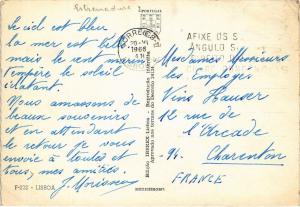 Estremadure
PORTUGAL
Le ciel est bleu
la mer est belle
mais le vent marin
tempère le soleil
éclatant.
Nous amassons de
beaux souvenirs
et en attendant
le retour je vous
envoie à toutes et
tous, mes amitiés.
J. Morisseau
P-232 - LISBOA
1966
AFIXE OS S
ANGULO S
Mesdames Messieurs
les Employés
Vins Hauser
12 rue de
l'Arcade
94. Charenton
FRANCE